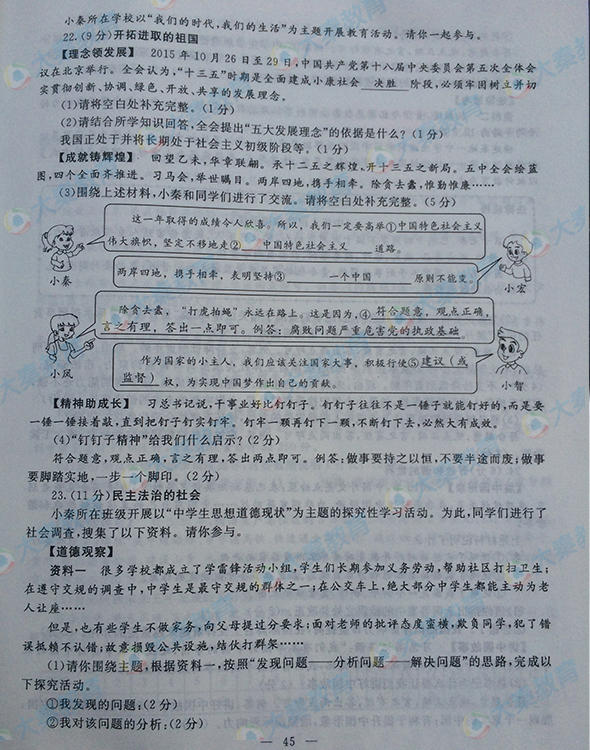 小秦所在学校以“我们的时代，我们的生活”为主题开展教育活动。请你一起参与。
22.(9分)开拓进取的祖国
【理念领发展】 2015年10月26日至29日，中国共产党第十八届中央委员会第五次全体会
议在北京举行。全会认为，“十三五”时期是全面建成小康社会 决胜 阶段，必须牢固树立并切
实贯彻创新、协调、绿色、开放、共享的发展理念。
(1)请将空白处补充完整。(1分)
(2)请结合所学知识回答，全会提出“五大发展理念”的依据是什么？(1分)
我国正处于并将长期处于社会主义初级阶段等。(1分)
【成就铸辉煌】 回望乙未，华章联翩。承十二五之辉煌，开十三五之新局。五中全会绘蓝
图，四个全面齐推进。习马会，举世瞩目。两岸四地，携手相牵。除贪去蠹，惟勤惟廉……
(3)围绕上述材料，小秦和同学们进行了交流。请将空白处补充完整。(5分)
这一年取得的成绩令人欣喜。所以，我们一定要高举①中国特色社会主义
伟大旗帜，坚定不移地走② 中国特色社会主义 道路。
小秦
两岸四地，携手相牵，表明坚持③ 一个中国 原则不能变。
小宏
除贪去蠹，“打虎拍蝇”永远在路上。这是因为，④ 符合题意，观点正确，
言之有理，答出一点即可。例答：腐败问题严重危害党的执政基础。
小凤
作为国家的小主人，我们应该关注国家大事，积极行使⑤建议（或
监督）权，为实现中国梦作出自己的贡献。
小智
【精神助成长】 习总书记说，干事业好比钉钉子。钉钉子往往不是一锤子就能钉好的，而是要
一锤一锤接着敲，直到把钉子钉实钉牢。钉牢一颗再钉下一颗，不断钉下去，必然大有成效。
(4)“钉钉子精神”给我们什么启示？(2分)
符合题意，观点正确，言之有理，答出两点即可。例答：做事要持之以恒，不要半途而废；做事
要脚踏实地，一步一个脚印。(2分)
23.(11分)民主法治的社会
小秦所在班级开展以“中学生思想道德现状”为主题的探究性学习活动。为此，同学们进行了
社会调查，搜集了以下资料。请你参与。
【道德观察】
资料一 很多学校都成立了学雷锋活动小组，学生们长期参加义务劳动，帮助社区打扫卫生；
在遵守交规的调查中，中学生是最守交规的群体之一；在公交车上，绝大部分中学生都能主动为老
人让座……
但是，也有些学生不做家务，向父母提过分要求；面对老师的批评态度蛮横，欺负同学，犯了错
误抵赖不认错；故意损毁公共设施，结伙打群架……
(1)请你围绕主题，根据资料一，按照“发现问题——分析问题——解决问题”的思路，完成以
下探究活动。
①我发现的问题：(2分)
②我对该问题的分析：(2分)
— 45 —